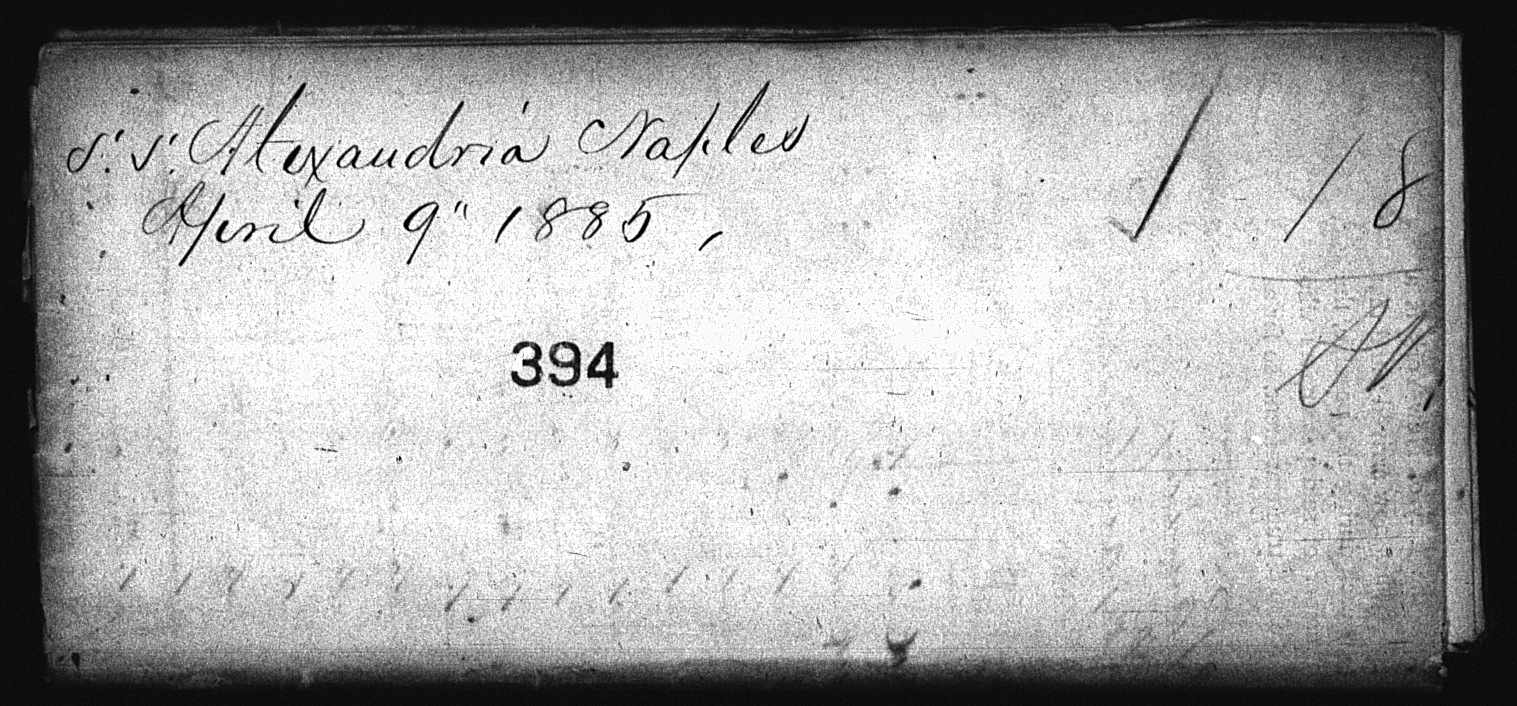 S.S. Alexandria Naples
April 9" 1885,
394
18